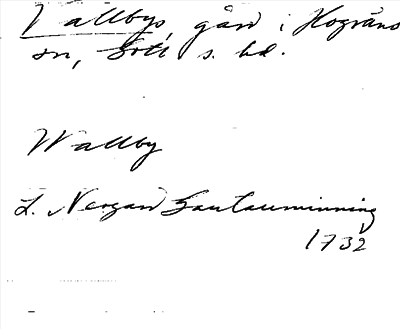 Vallbys, gård i Hogräns
sn, Gotl s. hd.
Wallby
L. Nergard Gautauminning
1732